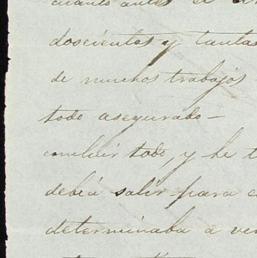 cuanto antes a
doscientos y tantas
de muchos trabajos
todo asegurado—
concluir todo, y he t
debía salir para c
determinaba a ve